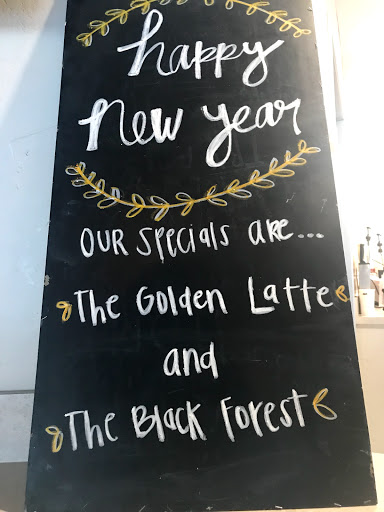 happy
new year
our specials are...
The Golden Latte
and
The Black Forest